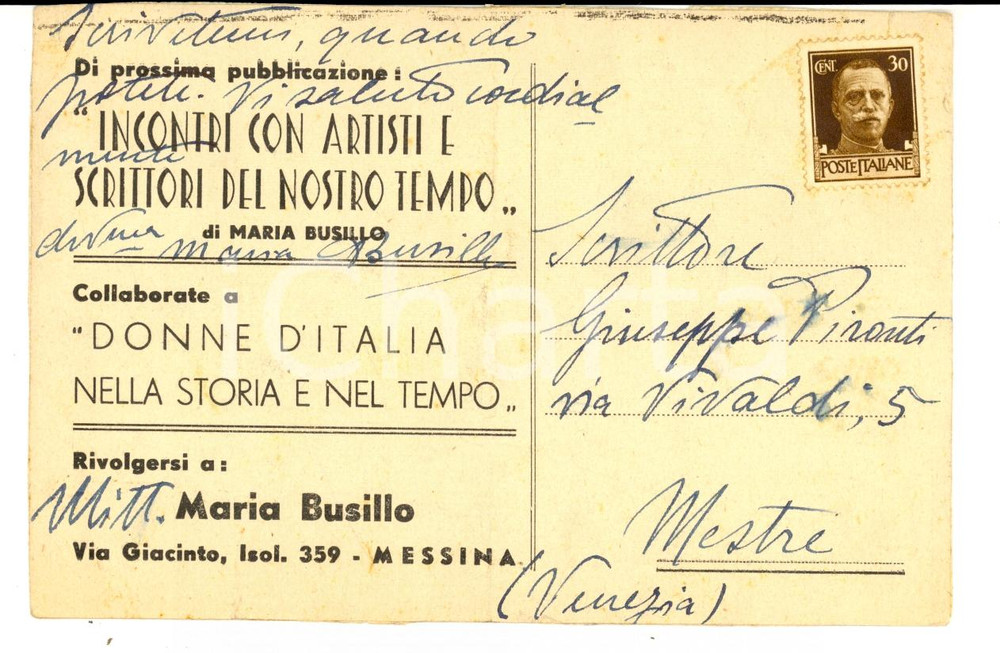 Scrivetemi, quando
Di prossima pubblicazione:
potete. Vi saluto cordial
"INCONTRI CON ARTISTI E
mente
SCRITTORI DEL NOSTRO TEMPO„
di MARIA BUSILLO
Maria Busillo
Collaborate a
"DONNE D'ITALIA
NELLA STORIA E NEL TEMPO„
Rivolgersi a:
Mitt. Maria Busillo
Via Giacinto, Isol. 359 - MESSINA
CENT. 30
POSTE ITALIANE
Scrittore
Giuseppe Pironti
via Vivaldi, 5
Mestre
(Venezia)
iCharta